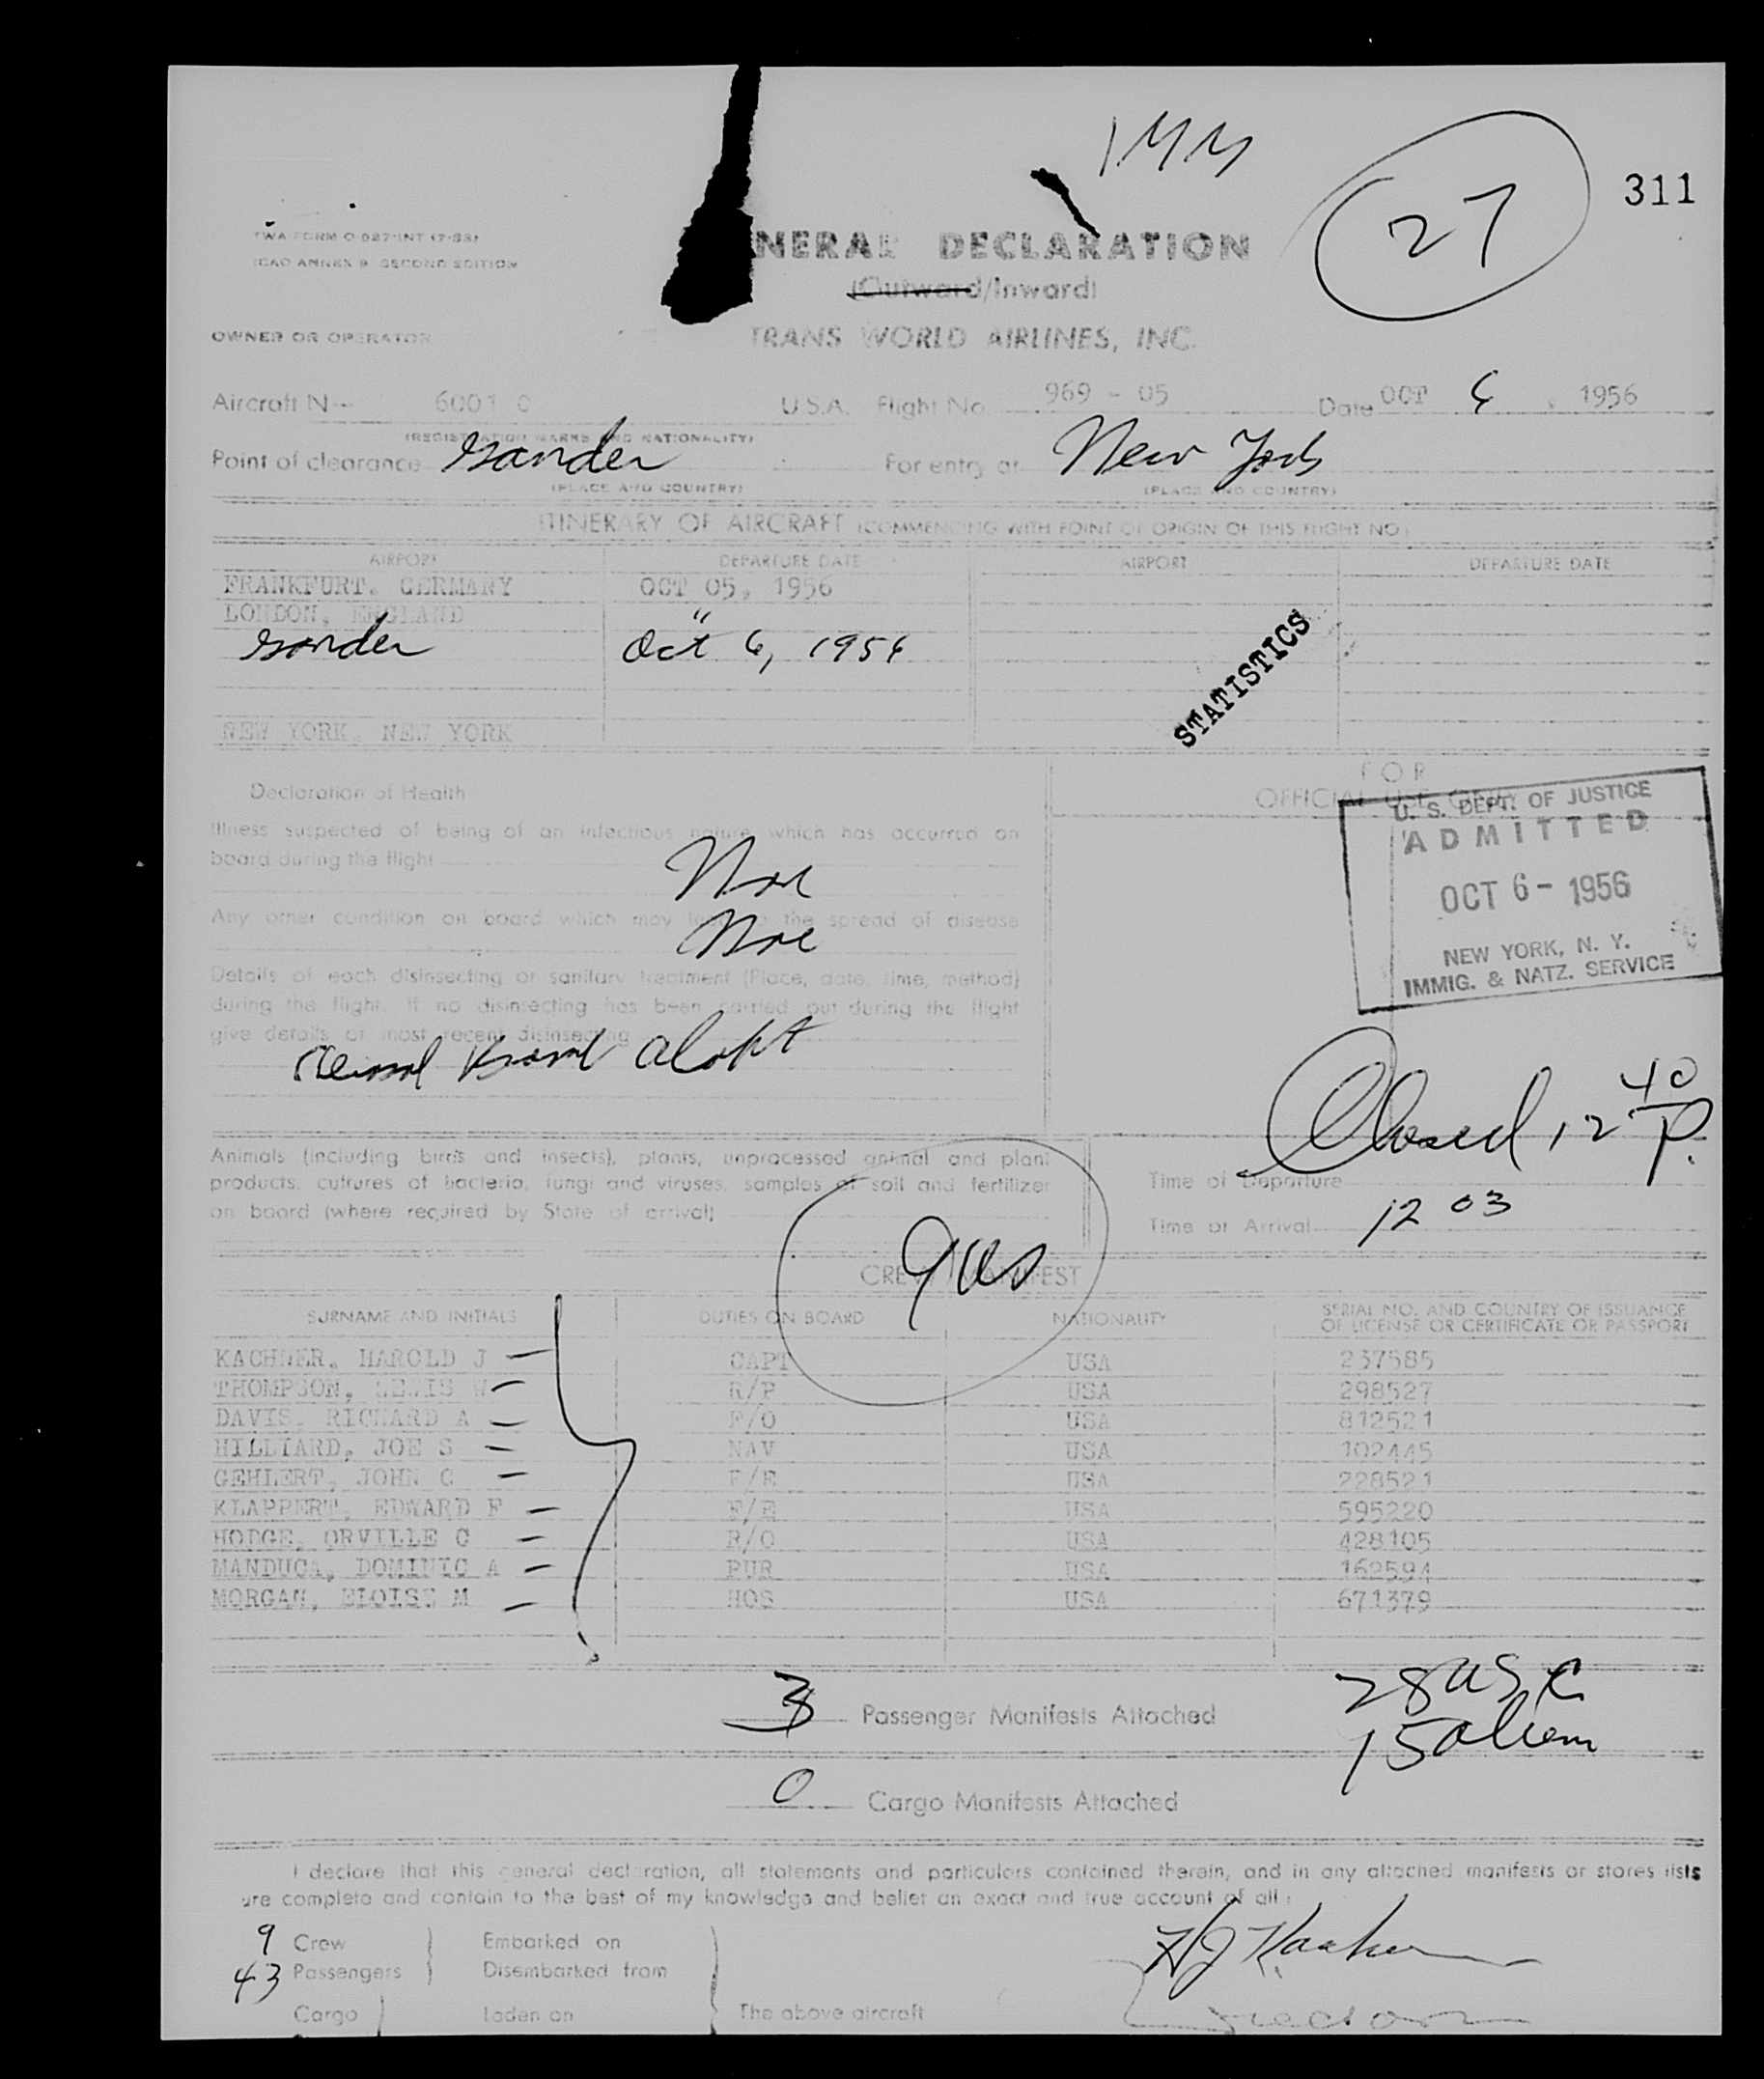 1 MM
27
311
TWA FORM O-027-INT (7-55)
ICAO ANNEX 9 SECOND EDITION
NERAL DECLARATION
(Outward/Inward)
OWNER OR OPERATOR
TRANS WORLD AIRLINES, INC.
Aircraft N-- 6001 C U.S.A. Flight No. 969 - 05 Date OCT 6, 1956
(REGISTRATION MARKS AND NATIONALITY)
Point of clearance Gander For entry at New York
(PLACE AND COUNTRY) (PLACE AND COUNTRY)
ITINERARY OF AIRCRAFT (COMMENCING WITH POINT OF ORIGIN OF THIS FLIGHT NO)
AIRPORT DEPARTURE DATE AIRPORT DEPARTURE DATE
FRANKFURT, GERMANY OCT 05, 1956
LONDON, ENGLAND "
Gander Oct 6, 1956
STATISTICS
NEW YORK, NEW YORK
FOR
OFFICIAL USE ONLY
U. S. DEPT. OF JUSTICE
ADMITTED
OCT 6 - 1956
NEW YORK, N. Y.
IMMIG. & NATZ. SERVICE
Declaration of Health
Illness suspected of being of an infectious nature which has occurred on
board during the flight
None
Any other condition on board which may lead to the spread of disease
None
Details of each disinsecting or sanitary treatment (Place, date, time, method)
during the flight. If no disinsecting has been carried out during the flight
give details of most recent disinsecting
Bomb
Closed 12 40 P.
Animals (including birds and insects), plants, unprocessed animal and plant
products, cultures of bacteria, fungi and viruses, samples of soil and fertilizer
on board (where required by State of arrival)
Time of Departure
Time of Arrival 12 03
9 US
CREW MANIFEST
SURNAME AND INITIALS DUTIES ON BOARD NATIONALITY SERIAL NO. AND COUNTRY OF ISSUANCE
OF LICENSE OR CERTIFICATE OR PASSPORT
KACHNER, HAROLD J CAPT USA 237585
THOMPSON, LEWIS W R/P USA 298527
DAVIS, RICHARD A F/O USA 812521
HILLIARD, JOE S NAV USA 102445
GEHLERT, JOHN C F/E USA 228521
KLAPPERT, EDWARD F F/E USA 595220
HODGE, ORVILLE C R/O USA 428105
MANDUCA, DOMINIC A PUR USA 162594
MORGAN, ELOISE M HOS USA 671379
3 Passenger Manifests Attached
28 US C
15 alien
0 Cargo Manifests Attached
I declare that this general declaration, all statements and particulars contained therein, and in any attached manifests or stores lists
are complete and contain to the best of my knowledge and belief an exact and true account of all:
9 Crew Embarked on
43 Passengers Disembarked from
Cargo Laden on The above aircraft